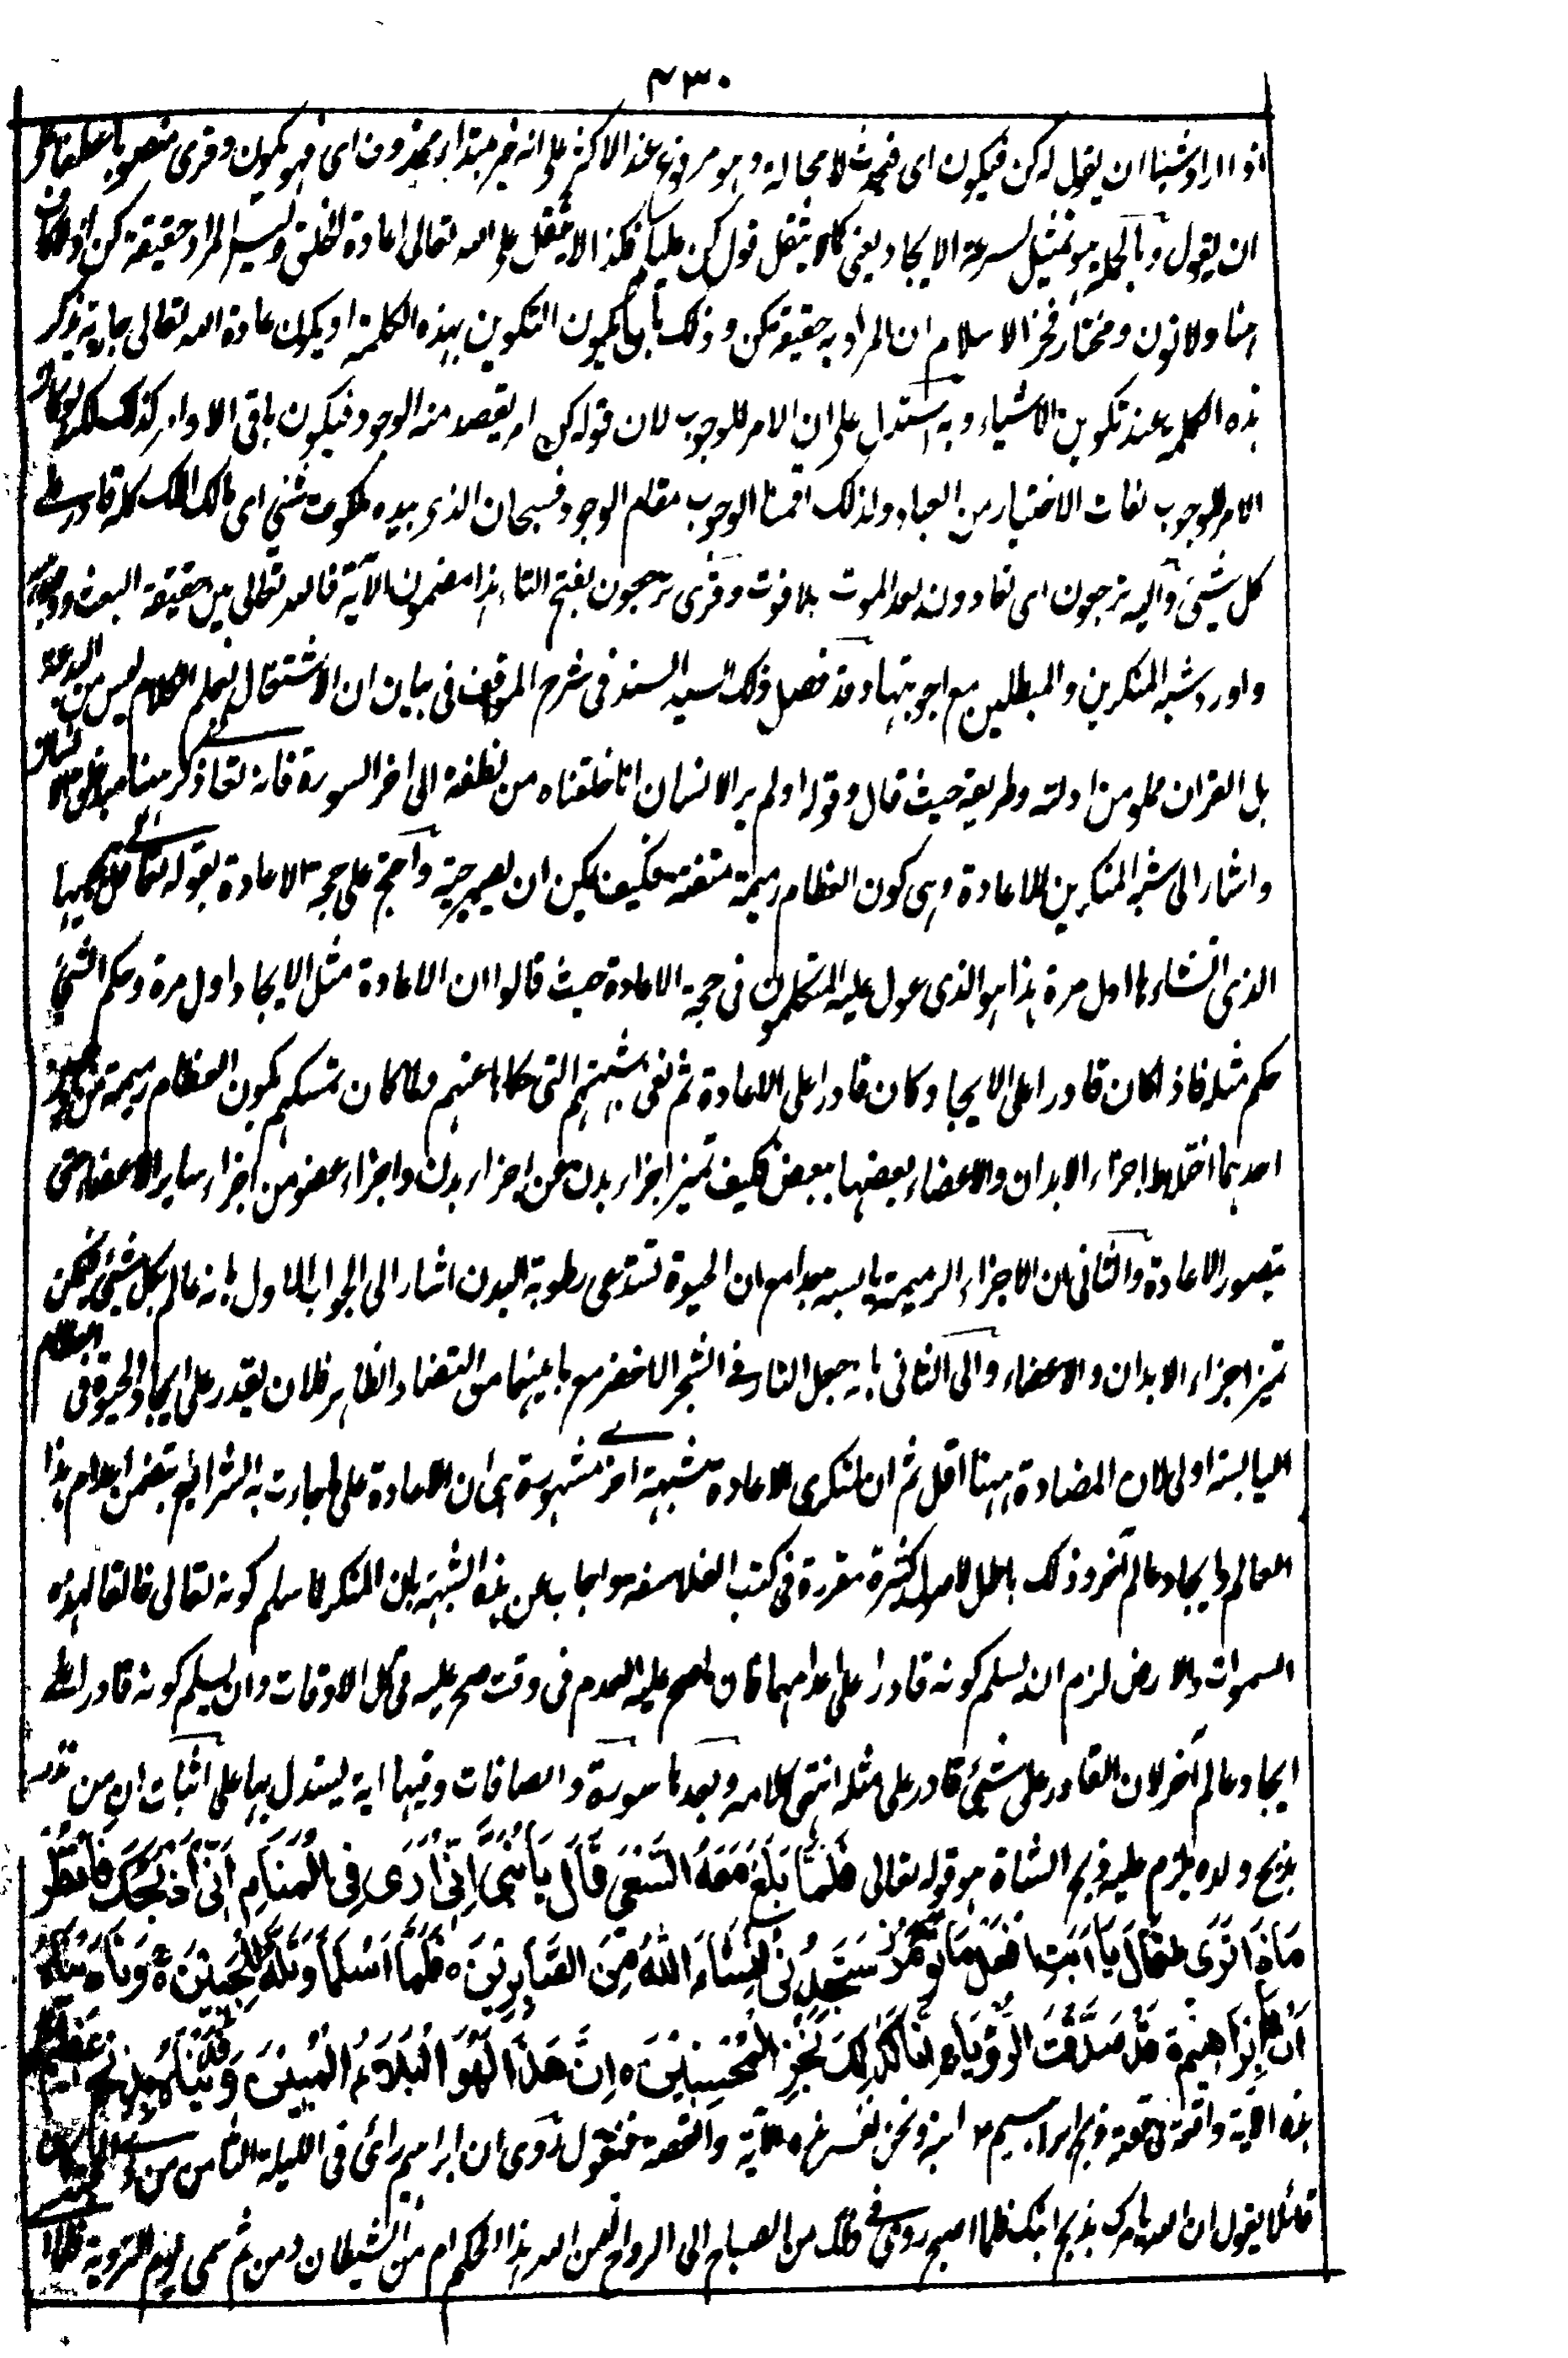 ٤٣٠
اذا اراد شيئا ان يقول له كن فيكون اى فيحدث لا محالة وهو مرفوع عند الاكثر على انه خبر مبتدأ محذوف اى فهو يكون وقرى منصوبا عطفا على
ان يقول وبالجملة هو تمثيل لسرعة الايجاد يعنى كما لا يثقل قول كن عليكم فكذا لا يثقل على الله تعالى اعادة الخلق وليس المراد حقيقة كن اذ لا كاف
هنا ولا نون ومختار فخر الاسلام ان المراد به حقيقة كن وذلك بان يكون التكوين بهذه الكلمة او يكون عادة الله تعالى جارية بذكر
هذه الكلمة عند تكوين الاشياء وبه استدل على ان الامر للوجوب لان قوله كن امر يقصد منه الوجود فيكون باقى الاوامر كذلك لكن لو كان
الامر للوجود لفات الاختيار من العباد ولذلك اقمنا الوجوب مقام الوجود فسبحان الذى بيده ملكوت كل شئ اى مالك الملك كله قادر على
كل شئ واليه ترجعون اى تعادون بعد الموت بلا فوت وقرى ترجعون بفتح التاء هذا مضمون الآية فالله تعالى بين حقيقة البعث
واورد شبه المنكرين والمبطلين مع اجوبتها وقد فصل ذلك السيد السند فى شرح المواقف فى بيان ان الاشتغال بعلم الكلام ليس من البدعة
بل القران مملو من ادلته وطريقه حيث قال وقوله اولم ير الانسان انا خلقناه من نطفة الى اخر السورة فانه تعالى ذكر ههنا مبدأ خلق الانسان
واشار الى شبه المنكرين للاعادة وهى كون العظام رميمة متفتتة فكيف يمكن ان يصير حية واحتج على حجة الاعادة بقوله تعالى قل يحييها
الذى انشاءها اول مرة هذا هو الذى عول عليه المتكلمون فى حجة الاعادة حيث قالوا ان الاعادة مثل الايجاد اول مرة وحكم الشئ
حكم مثله فاذا كان قادرا على الايجاد كان قادرا على الاعادة ثم نفى شبهتهم التى حكاها عنهم ولما كان تمسكهم بكون العظام رميمة من وجهين
احدهما اختلاط اجزاء الابدان والاعضاء بعضها ببعض فكيف تميز اجزاء بدن عن اجزاء بدن واجزاء عضو من اجزاء ساير الاعضاء حتى
يتصور الاعادة والثانى ان الاجزاء الرميمة يابسة جدا مع ان الحيوة تستدعى رطوبة البدن اشار الى الجواب الاول بانه عالم بكل شئ فيمكن
تميز اجزاء الابدان والاعضاء والى الثانى بانه جعل النار فى الشجر الاخضر مع ما بينهما من التضاد الظاهر فلان يقدر على ايجاد الحيوة فى العظام
اليابسة اولى لان المضادة ههنا اقل ثم ان لمنكرى الاعادة شبهة اخرى مشهورة هى ان الاعادة على ما جاءت به الشرايع يتضمن اعدام هذا
العالم وايجاد عالم آخر وذلك باطل لاصول كثيرة مقررة فى كتب الفلاسفة واجاب عن هذه الشبهة بان المنكر لما سلم كونه تعالى خالقا لهذه
السموات والارض لزم ان يسلم كونه قادرا على اعدامهما فان ما صح عليه العدم فى وقت صح عليه فى كل الاوقات وان يسلم كونه قادرا على
ايجاد عالم آخر لان القادر على شئ قادر على مثله انتهى كلامه وبعدها سورة والصافات وفيها اية يستدل بها على اثبات ان من نذر
بذبح ولده يلزم عليه ذبح الشاة هو قوله تعالى فَلَمَّا بَلَغَ مَعَهُ السَّعْىَ قَالَ يَا بُنَىَّ اِنِّى اَرَى فِى الْمَنَامِ اَنِّى اَذْبَحُكَ فَانْظُرْ
مَاذَا تَرَى ط قَالَ يَا اَبَتِ افْعَلْ مَا تُؤْمَرُ سَتَجِدُنِى اِنْ شَاءَ اللّٰهُ مِنَ الصَّابِرِيْنَ ہ فَلَمَّا اَسْلَمَا وَتَلَّهُ لِلْجَبِيْنِ ہ وَنَادَيْنَاهُ
اَنْ يَّا اِبْرَاهِيْمُ ہ قَدْ صَدَّقْتَ الرُّؤْيَا ہ اِنَّا كَذٰلِكَ نَجْزِى الْمُحْسِنِيْنَ ہ اِنَّ هٰذَا لَهُوَ الْبَلَاءُ الْمُبِيْنُ وَفَدَيْنَاهُ بِذِبْحٍ عَظِيْمٍ
هذه الاية واقعة فى قصة ذبح ابراهيم ع م ابنه ونحن نفسر هذه الآية والقصة فنقول روى ان ابراهيم رأى فى الليلة الثامن من
قائلا يقول ان الله يامرك بذبح ابنك فلما اصبح روى فى ذلك من الصباح الى الرواح أمن الله هذا الحكم ام من الشيطان ومن ثم سمى يوم التروية فلما